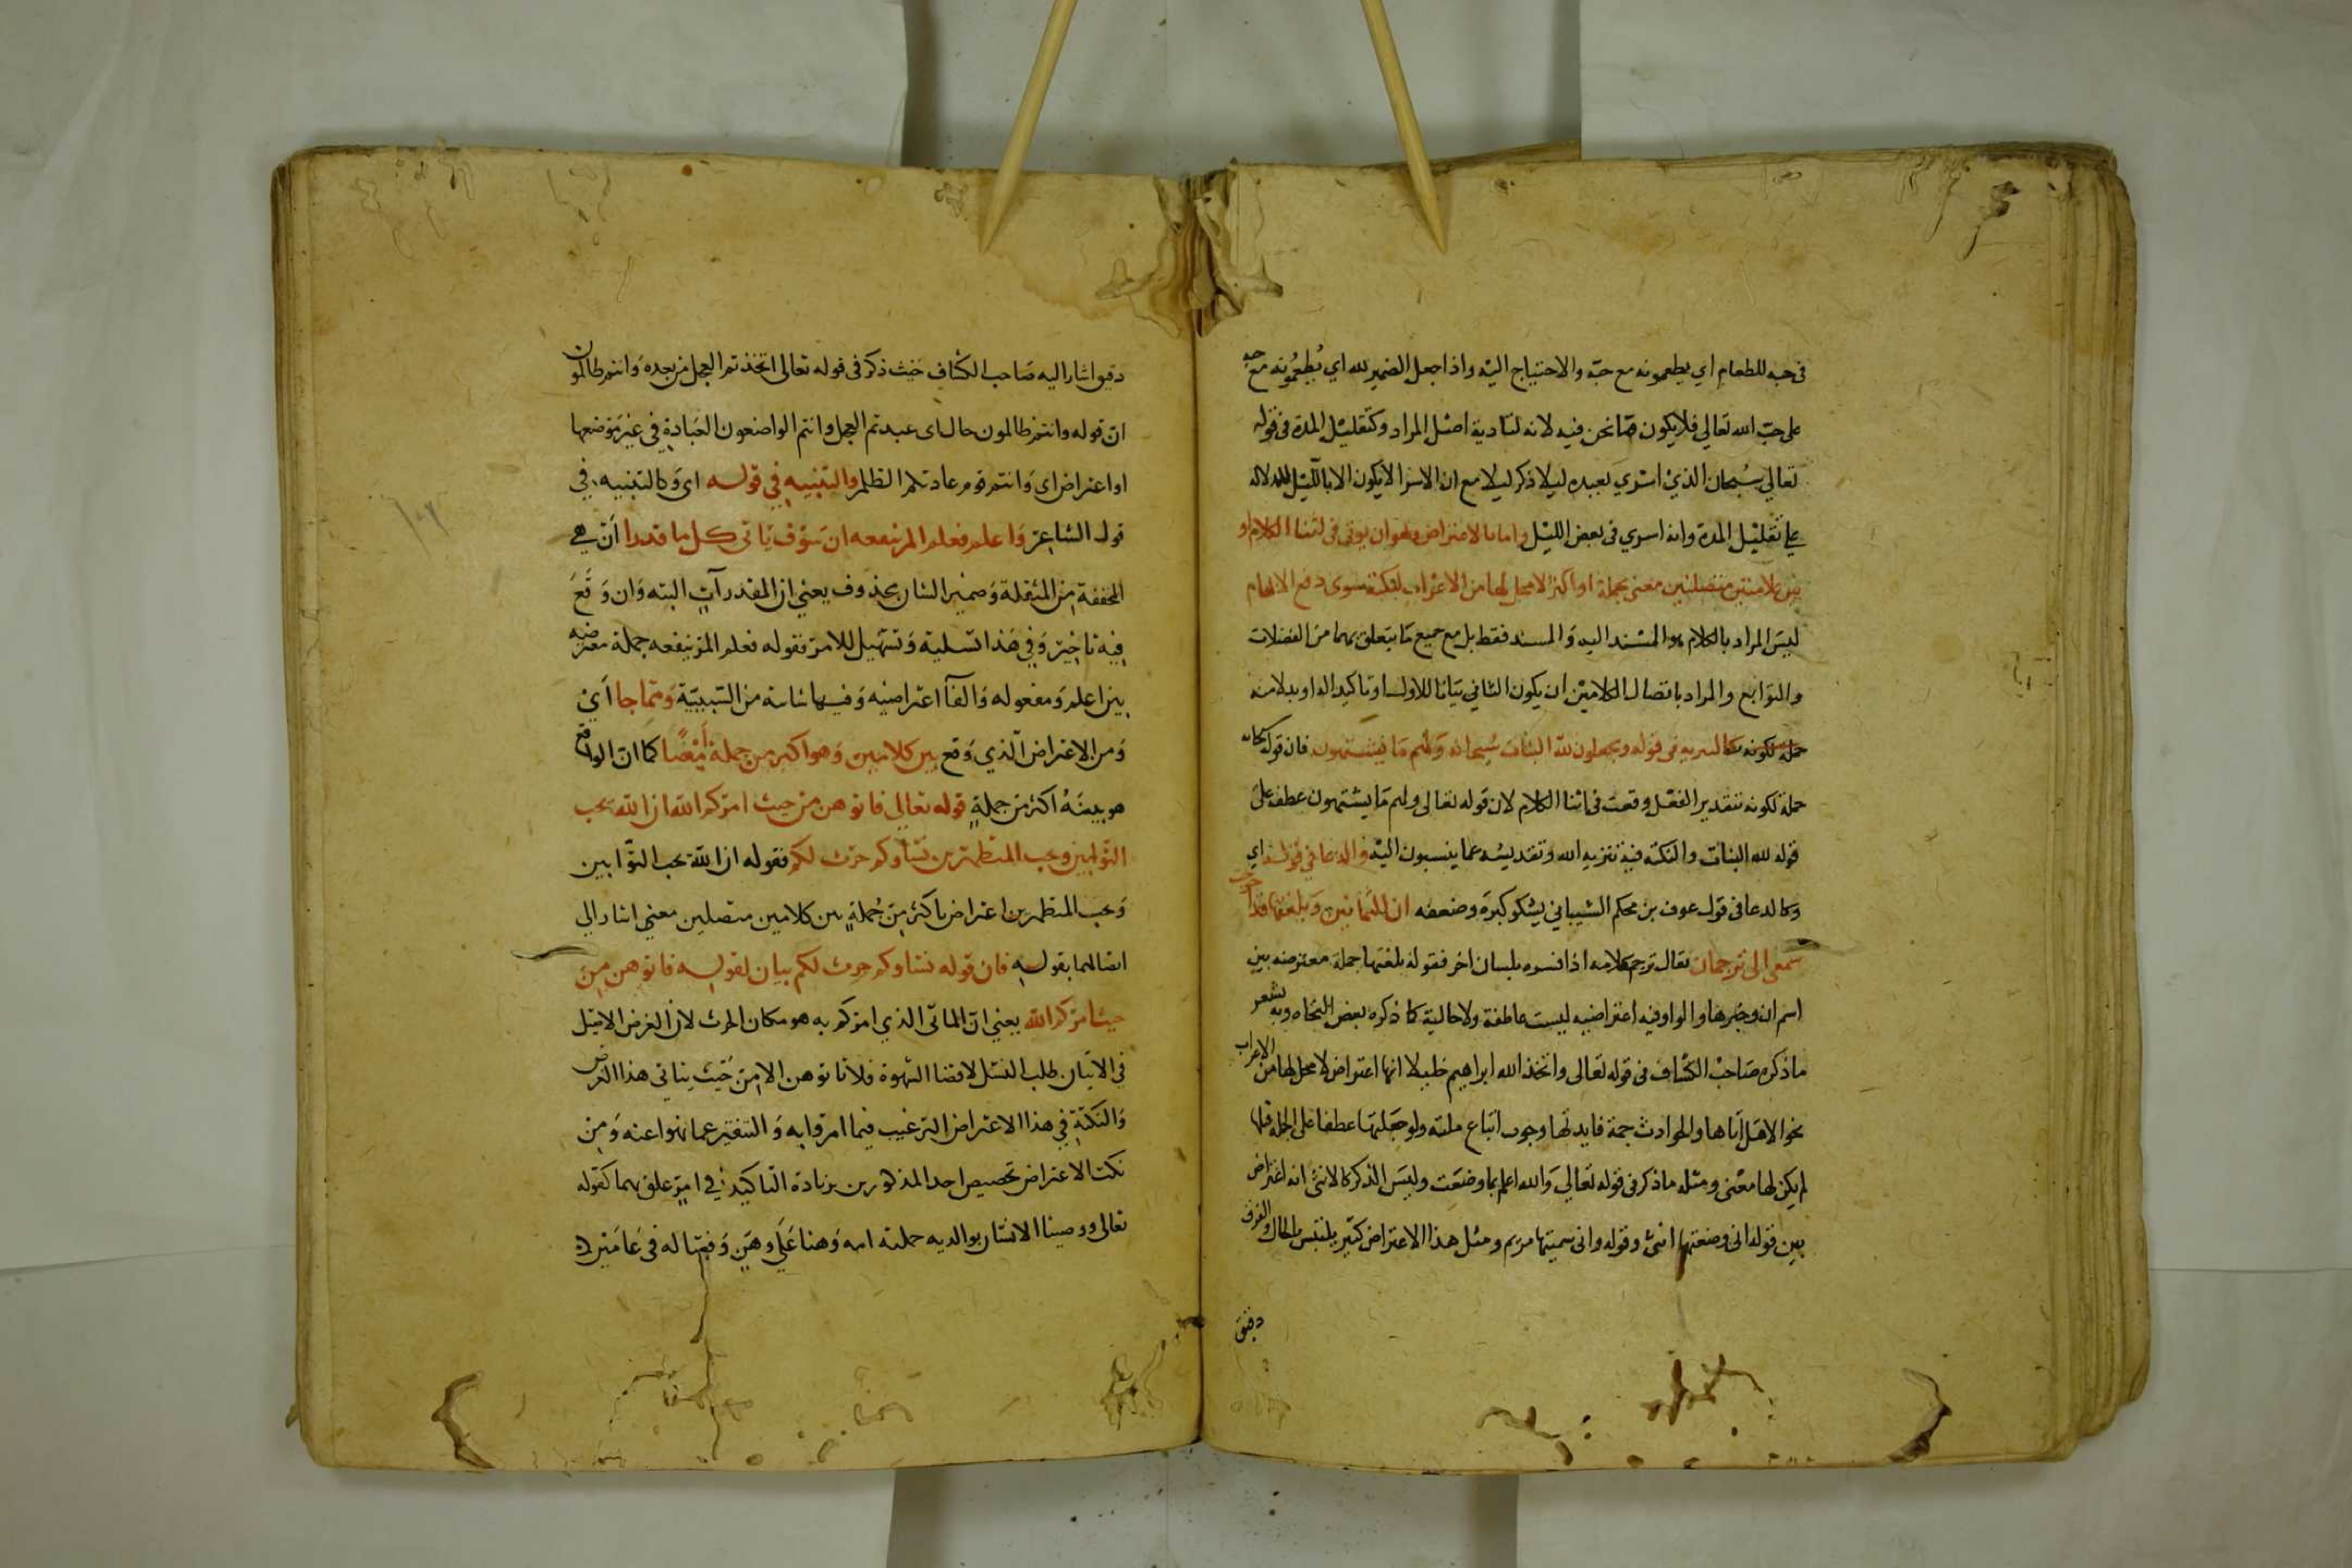 في حبه للطعام اي يطعمونه مع حبّه والاحتياج اليه واذا جعل الضمير لله اي يُطعِمُونه مع حبه
على حبّ الله تعالي فلا يكون مما نحن فيه لانه لتادية اصل المراد وكتقليل المدة في قوله
تعالي سُبحان الذي اسْري بعبده ليلا ذكر ليلا مع ان الاسرا لا يكون الا بالليْل للدلالة
علي تقليْل المدة وانه اسري في بعض الليْل واما بالاعتراض وهو ان يوتى في اثنا الكلام او
بين كلامين متصلين معنى بجملة او اكثر لا محل لها من الاعراب لنكتة سوى دفع الايهام
ليسَ المراد بالكلام هو المسْند اليه وَالمسند فقط بل مع جميع مَا يتعلق بهما من الفضلات
والتوابع والمراد باتصال الكلاميْن ان يكون الثاني بيَانا للاول او تاكيدا له او بدلا منه
كالتنزيه في قوله ويجعلون لله البنات سُبحانه وَلهم مَا يشتهون فان قوله سبحانه
جملة لكونه بتقدير الفعْل وقعت في اثنا الكلام لان قوله تعالى ولهم مَا يشتهون عطف على
قوله لله البنات والنكتة فيه تنزيه الله وتقديسه عما ينسبون اليْه والدعا في قوله اي
وكالدعا في قول عوف بن محكم الشيباني يشكو كبرَه وضعفه ان الثمانين وَبلغتها قد احوجت
سمعي الى ترجمان يقال ترجم كلامه اذا فسره بلسان اخر فقوله بلغتها جملة معترضه بين
اسم ان وخبرها والواو فيه اعتراضيه ليست عاطفة ولا حالية كما ذكره بعض النحاه وبه يشعر
ما ذكره صَاحبْ الكشاف في قوله تعالى واتخذ الله ابراهيم خليلا انها اعتراض لا محل لها من الاعراب
نحو الا هل اتاها والحوادث جمة فايدتها وجوب اتباع ملته ولو جعلتها عطفا على الجملة قبلها
لم يكن لها معْنى ومثله ما ذكر في قوله تعالي وَالله اعلم بما وضعَت وليسَ الذكر كالانثى انه اعتراض
بين قوله اني وضعتها انثى وقوله واني سميتها مريم ومثل هذا الاعتراض كثير يلتبس بالحال والفرق
دقيق
دقيق اشار اليه صَاحب الكشاف حَيْث ذكر في قوله تعالى اتخذتم العجل من بعده وَانتم ظالمون
انّ قوله وانتم ظالمون حال اى عبدتم العجل وانتم الواضعون العبَادةِ في غير مَوضعها
او اعتراض اى وَانتم قوم عادتكم الظلم والتنبيه في قوله اى وَكالتنبيه في
قول الشاعِر وَاعلم فعلم المرء ينفعه ان سَوْف يَاتى كل ما قدرا اَنْ هي
المخففة مِن المثقلة وَضمير الشان محذوف يعني ان المقدر آتٍ البته وَان وَقَعَ
فِيهِ تاخيْر وَفي هَذا تسلية وَتسْهيل للامر فقوله فعلم المرء ينفعه جملة معترضه
بين اعلم وَمفعوله وَالفآ اعتراضيه وَفيها شائبة من السَّببيّة وَمما جا اَيْ
وَمن الاعتراض الّذي وَقع بين كلامين وَهو اكثر من جملة اَيْضًا كما انّ الواقع
هو بينَهُ اكثر من جملةٍ قوله تعالي فاتوهن من حيث امركم الله ان الله يحب
التوّابين ويحب المتطهرين نسآوكم حرث لكم فقوله ان الله يحب التوّابين
وَيحب المتطهرين اعتراض باكثر مِن جُملةٍ بين كلامين متصلين معنى اشار الي
اتصالهما بقوله فان قوله نساوكم حرث لكم بيان لقوله فاتوهن مِن
حيث امركم الله يعني انّ الماتى الذي امركم به هو مكان الحرث لان الغرض الاصْل
في الاتيان طلب النسْل لا قضا الشهوة فلا تاتوهن الا مِن حَيْث يتاتى هذا الغرض
وَالنكتةِ في هذا الاعتراض الترغيب فيما امروا به وَالتنفير عما نهوا عنه وَمِن
نكت الاعتراض تخصيص احد المذكورين بزيادة التاكيد في امر علق بهما كقوله
تعالى ووصينا الانسان بوالديه حملته امه وَهنا عَلَى وَهن وَفصاله في عَامَيْن